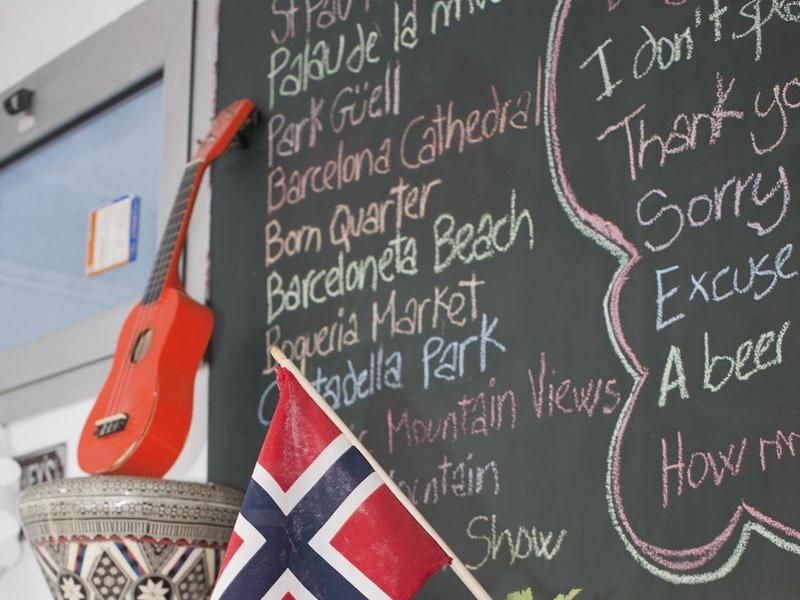 St Pau
Palau de la
Park Güell
Barcelona Cathedral
Born Quarter
Barceloneta Beach
Boqueria Market
Park
Mountain Views
Show
I don't spe
Thank yo
Sorry
Excuse
A beer
How m